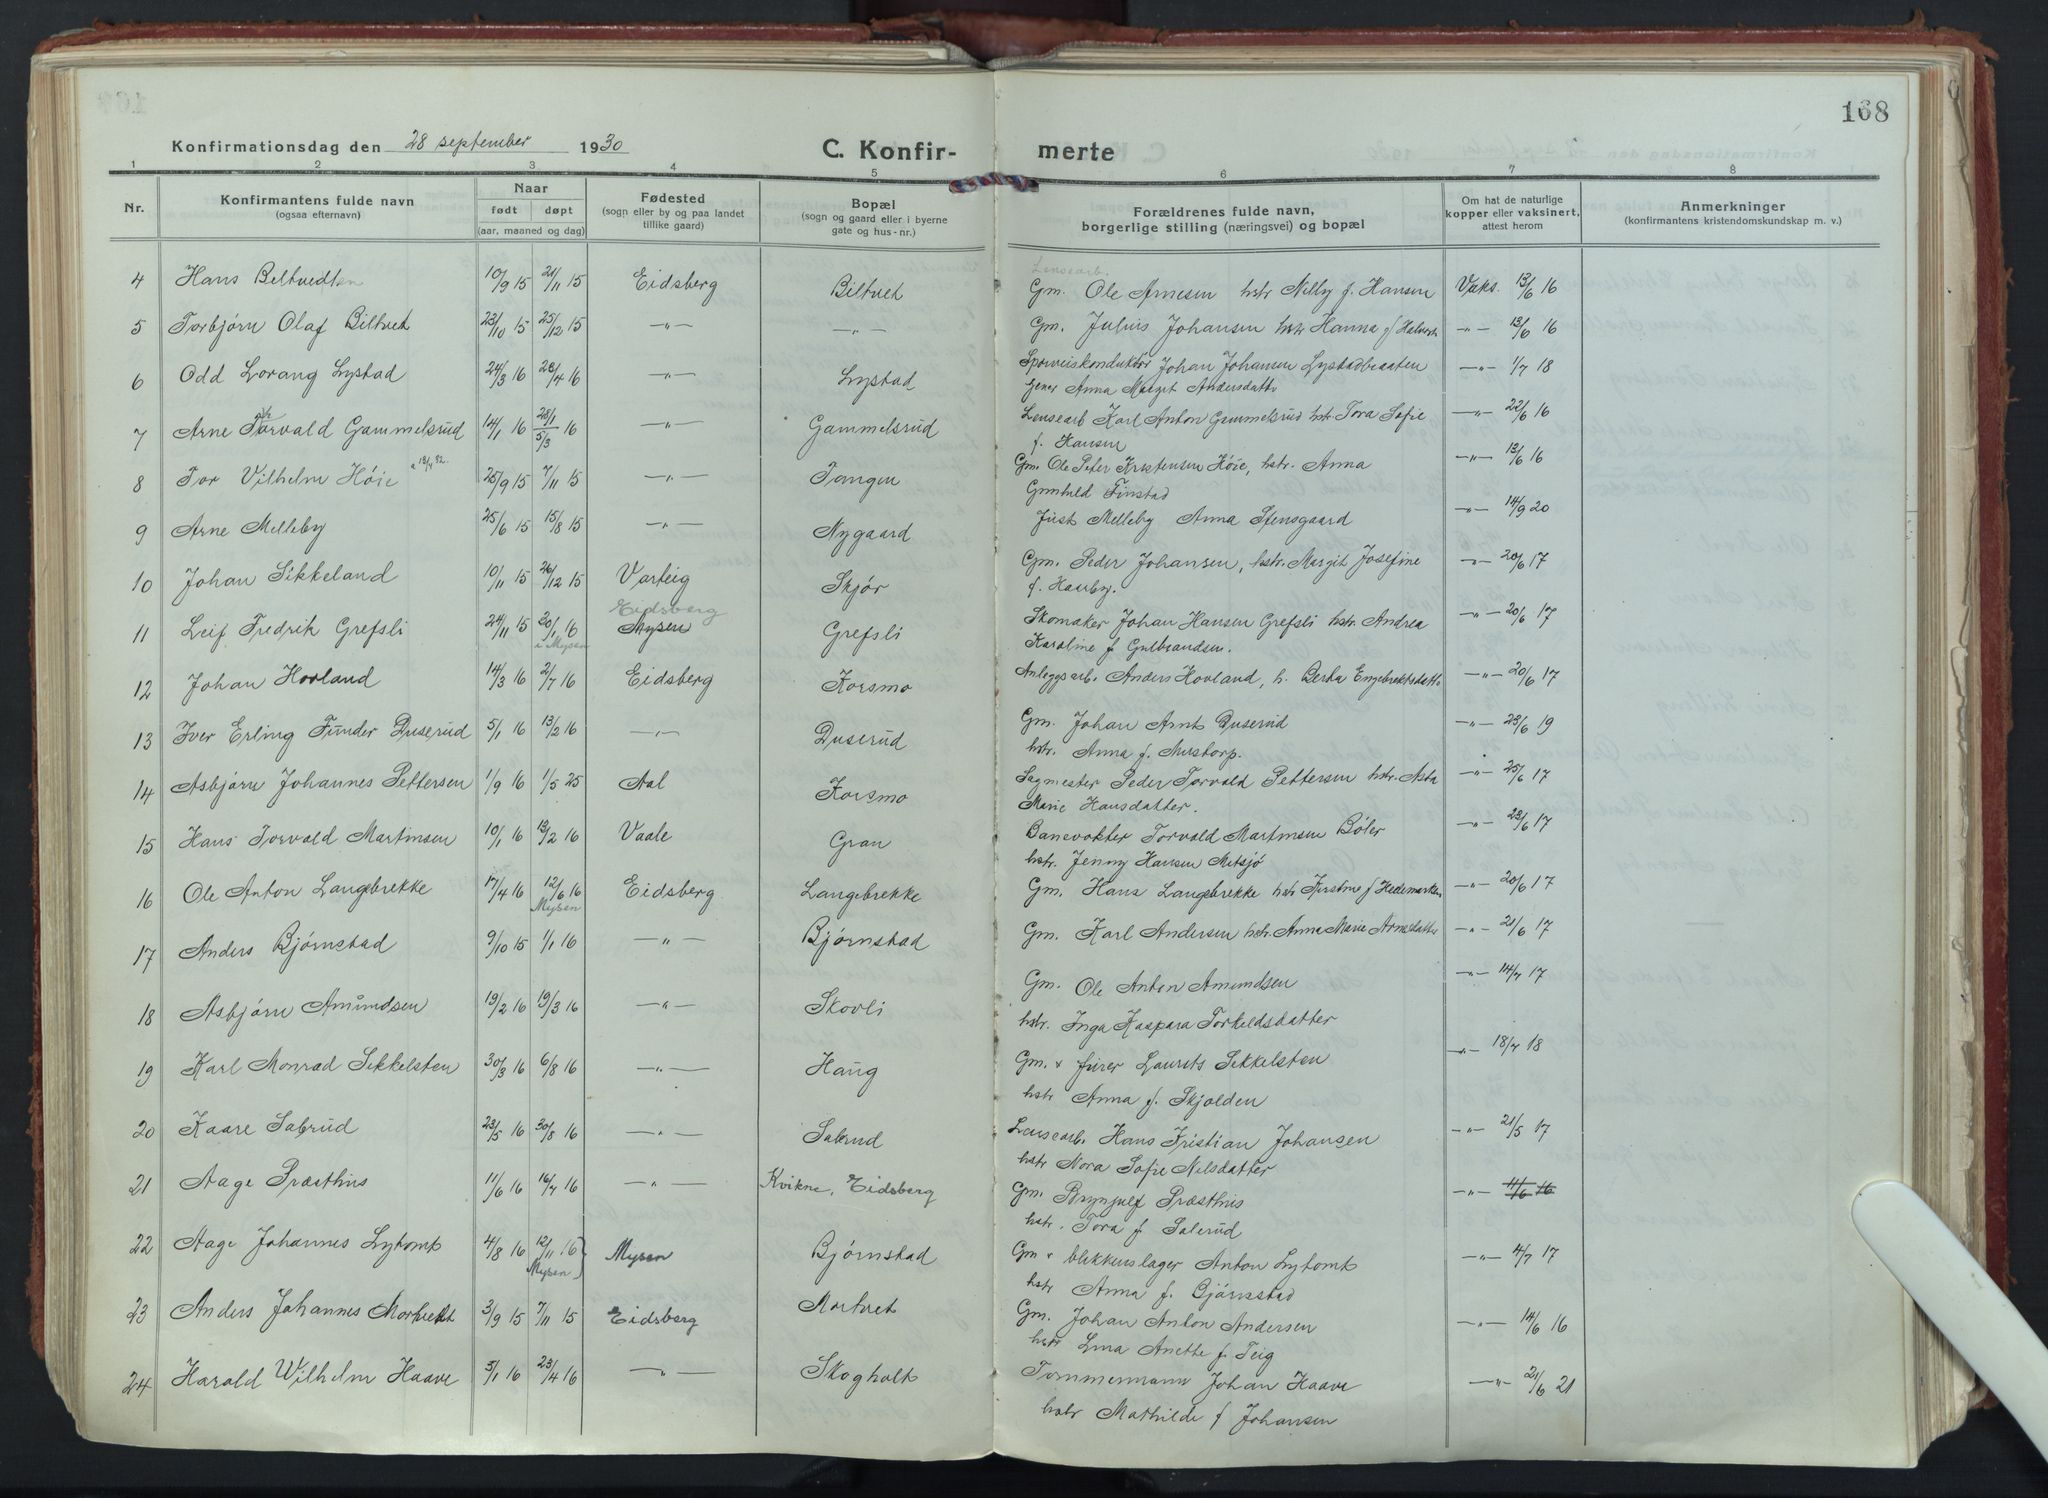 168
Konfirmationsdag den 28 september 1930
C. Konfir- merte
1 2 3 4 5 6 7 8
Nr.
Konfirmantens fulde navn
(ogsaa efternavn)
Naar
født døpt
(aar, maaned og dag)
Fødested
(sogn eller by og paa landet
tillike gaard)
Bopæl
(sogn og gaard eller i byerne
gate og hus-nr.)
Forældrenes fulde navn,
borgerlige stilling (næringsvei) og bopæl
Om hat de naturlige
kopper eller vaksinert,
attest herom
Anmerkninger
(konfirmantens kristendomskundskap m. v.)
Lensearb.
4 Hans Biltvedten 10/9 15 21/11 15 Eidsberg Biltvet Gm. Ole Arnesen hstr Nilly f. Hansen Vaks. 13/6 16
5 Torbjørn Olaf Biltvet 23/10 15 25/12 15 —"— —"— Gm. Julius Johansen hstr Hanna f —"— 13/6 16
6 Odd Lorang Lystad 24/3 16 28/4 16 —"— Lystad Sporveiskonduktør Johan Johansen Lystadbraaten —"— 1/7 18
Anna Margit Andersdatter
7 Arne Torvald Gammelsrud 14/1 16 28/1 5/3 16 —"— Gammelsrud Lensearb Karl Anton Gammelsrud hstr. Tora Sofie —"— 22/6 16
f. Hansen
8 Tor Vilhelm Høie 25/9 15 7/11 15 —"— Tangen Gm. Ole Peter Kristensen Høie, hstr. Anna —"— 13/6 16
Gunhild Finstad
9 Arne Melleby 25/6 15 15/8 15 —"— Nygaard Just Melleby Anna Stensgaard —"— 14/9 20
10 Johan Sikkeland 10/11 15 26/12 15 Varteig Skjør Gm. Peder Johansen, hstr. Margit Josefine —"— 20/6 17
f. Hauby.
Eidsberg
11 Leif Fredrik Grefsli 24/11 15 20/1 16 Mysen Grefsli Skomaker Johan Hansen Grefsli hstr. Andrea —"— 20/6 17
i Mysen
Karoline f Gulbrandsen.
12 Johan Hovland 14/3 16 2/7 16 Eidsberg Korsmo Anleggsarb. Anders Hovland, h. Berta Engebrektsdatter —"— 20/6 17
13 Iver Erling Funder Duserud 5/1 16 13/2 16 —"— Duserud Gm. Johan Arnt Duserud —"— 23/6 19
hstr. Anna f. Aurstorp.
14 Asbjørn Johannes Pettersen 1/9 16 1/5 25 Aal Korsmo Sagmester Peder Torvald Pettersen hstr. Asta —"— 25/6 17
Marie Hansdatter.
15 Hans Torvald Martinsen 10/1 16 13/2 16 Vaale Gran Banevokter Torvald Martinsen Bøler —"— 23/6 17
hstr. Jenny Hansen Mitsjø
16 Ole Anton Langebrekke 17/4 16 12/6 16 Eidsberg Langebrekke Gm. Hans Langebrekke hstr Kirstine f Hedemarken —"— 20/6 17
Mysen
17 Anders Bjørnstad 9/10 15 1/1 16 —"— Bjørnstad Gm. Karl Andersen hstr. Anna Marie Arnesdatter —"— 21/6 17
18 Asbjørn Amundsen 19/2 16 19/3 16 —"— Skovli Gm. Ole Anton Amundsen —"— 14/7 17
hstr. Inga Kaspara Torkeldsdatter
19 Karl Monrad Sikkelsten 30/3 16 6/8 16 —"— Haug Gm. & furer Laurits Sikkelsten —"— 18/7 18
hstr Anna f. Skjolden
20 Kaare Sabrud 23/5 16 30/8 16 —"— Sabrud Lensearb. Hans Kristian Johansen —"— 21/5 17
hstr Nora Sofie Nilsdatter
21 Aage Præsthus 11/6 16 16/7 16 —"— Kvikne, Eidsberg Gm. Brynjulf Præsthus —"— 11/6 16
hstr. Tora f. Salerud
22 Aage Johannes Lytomt 4/8 16 12/11 16 Mysen Bjørnstad Gm & blikkenslager Anton Lytomt —"— 4/7 17
Mysen
hstr Anna f. Bjørnstad
23 Anders Johannes Mortvedt 3/9 15 7/11 15 Eidsberg Mortvet Gm. Johan Anton Andersen —"— 14/6 16
hstr Lina Anette f. Teig
24 Harald Wilhelm Haave 5/1 16 23/4 16 —"— Skogholt Tømmermann Johan Haave —"— 21/6 21
hstr Mathilde f Johansen